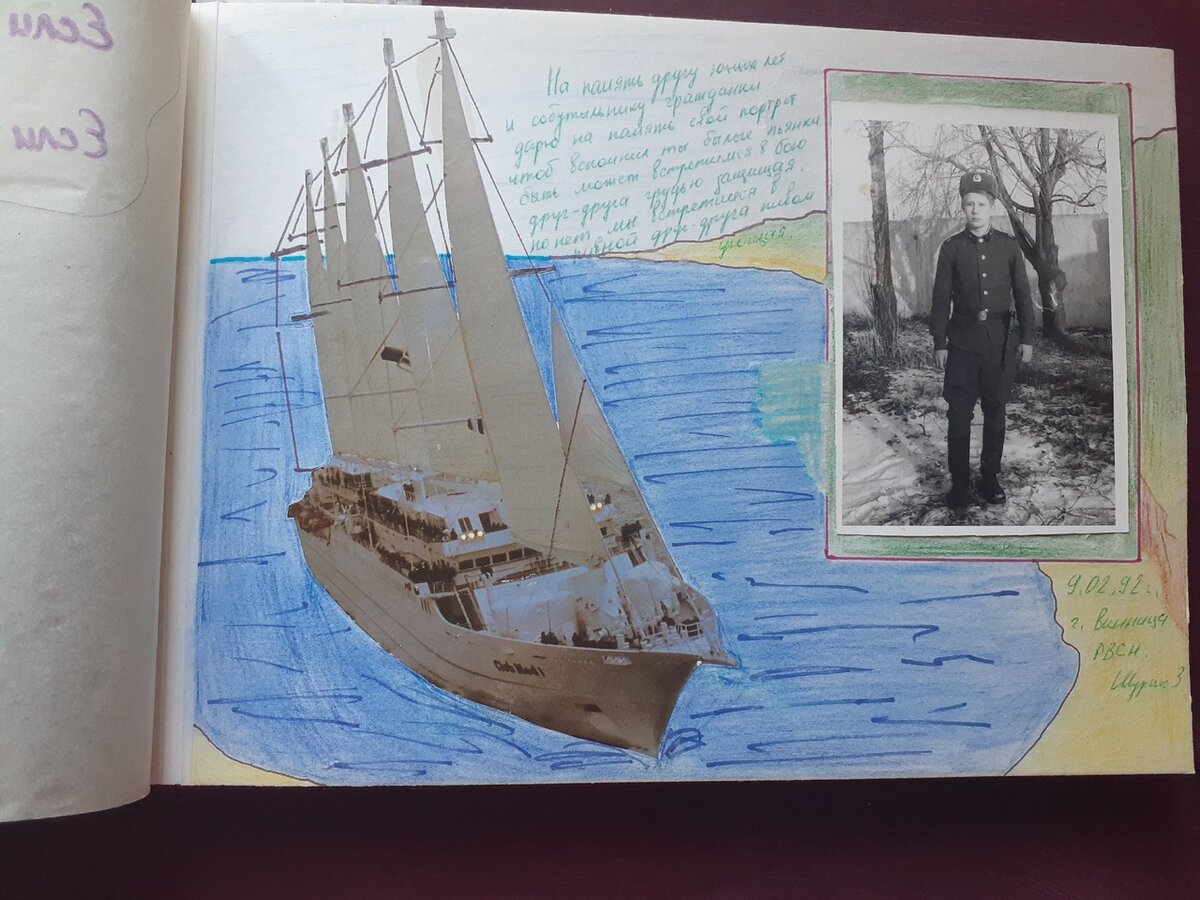 Если
Если
На память другу юных лет
и собутыльнику гражданки
дарю на память свой портрет
чтоб вспомнил ты былые пьянки
быть может встретимся в бою
друг-друга грудью защищая.
но нет, мы встретимся в
пивной друг-друга пивом
угощая.
Club Med 1
9.02.92 г.
г. Винница
РВСН.
Шурик З